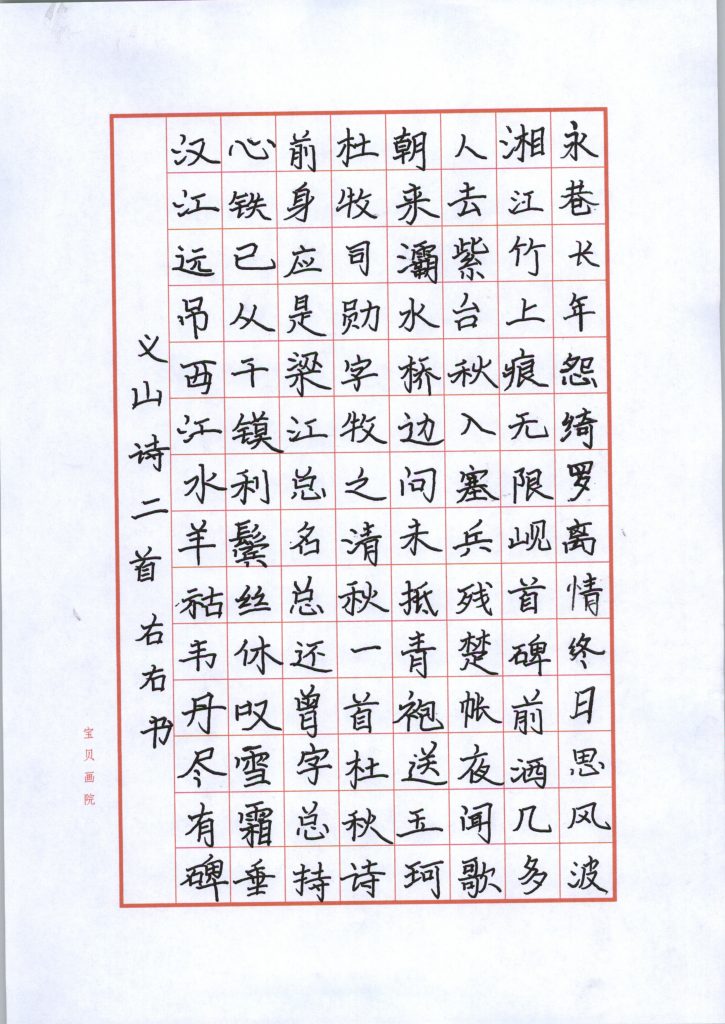 永巷长年怨绮罗离情终日思风波
湘江竹上痕无限岘首碑前洒几多
人去紫台秋入塞兵残楚帐夜闻歌
朝来灞水桥边问未抵青袍送玉珂
杜牧司勋字牧之清秋一首杜秋诗
前身应是梁江总名总还曾字总持
心铁已从干镆利鬓丝休叹雪霜垂
汉江远吊西江水羊祜韦丹尽有碑
义山诗二首右右书
宝贝画院